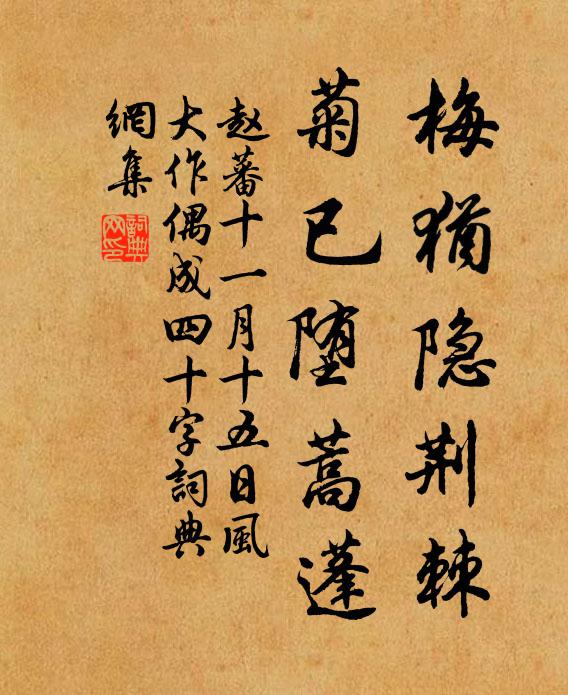 梅猶隐荆棘
菊已堕蒿蓬
赵蕃十一月十五日風
大作偶成四十字詞典
網集
詞典
网印